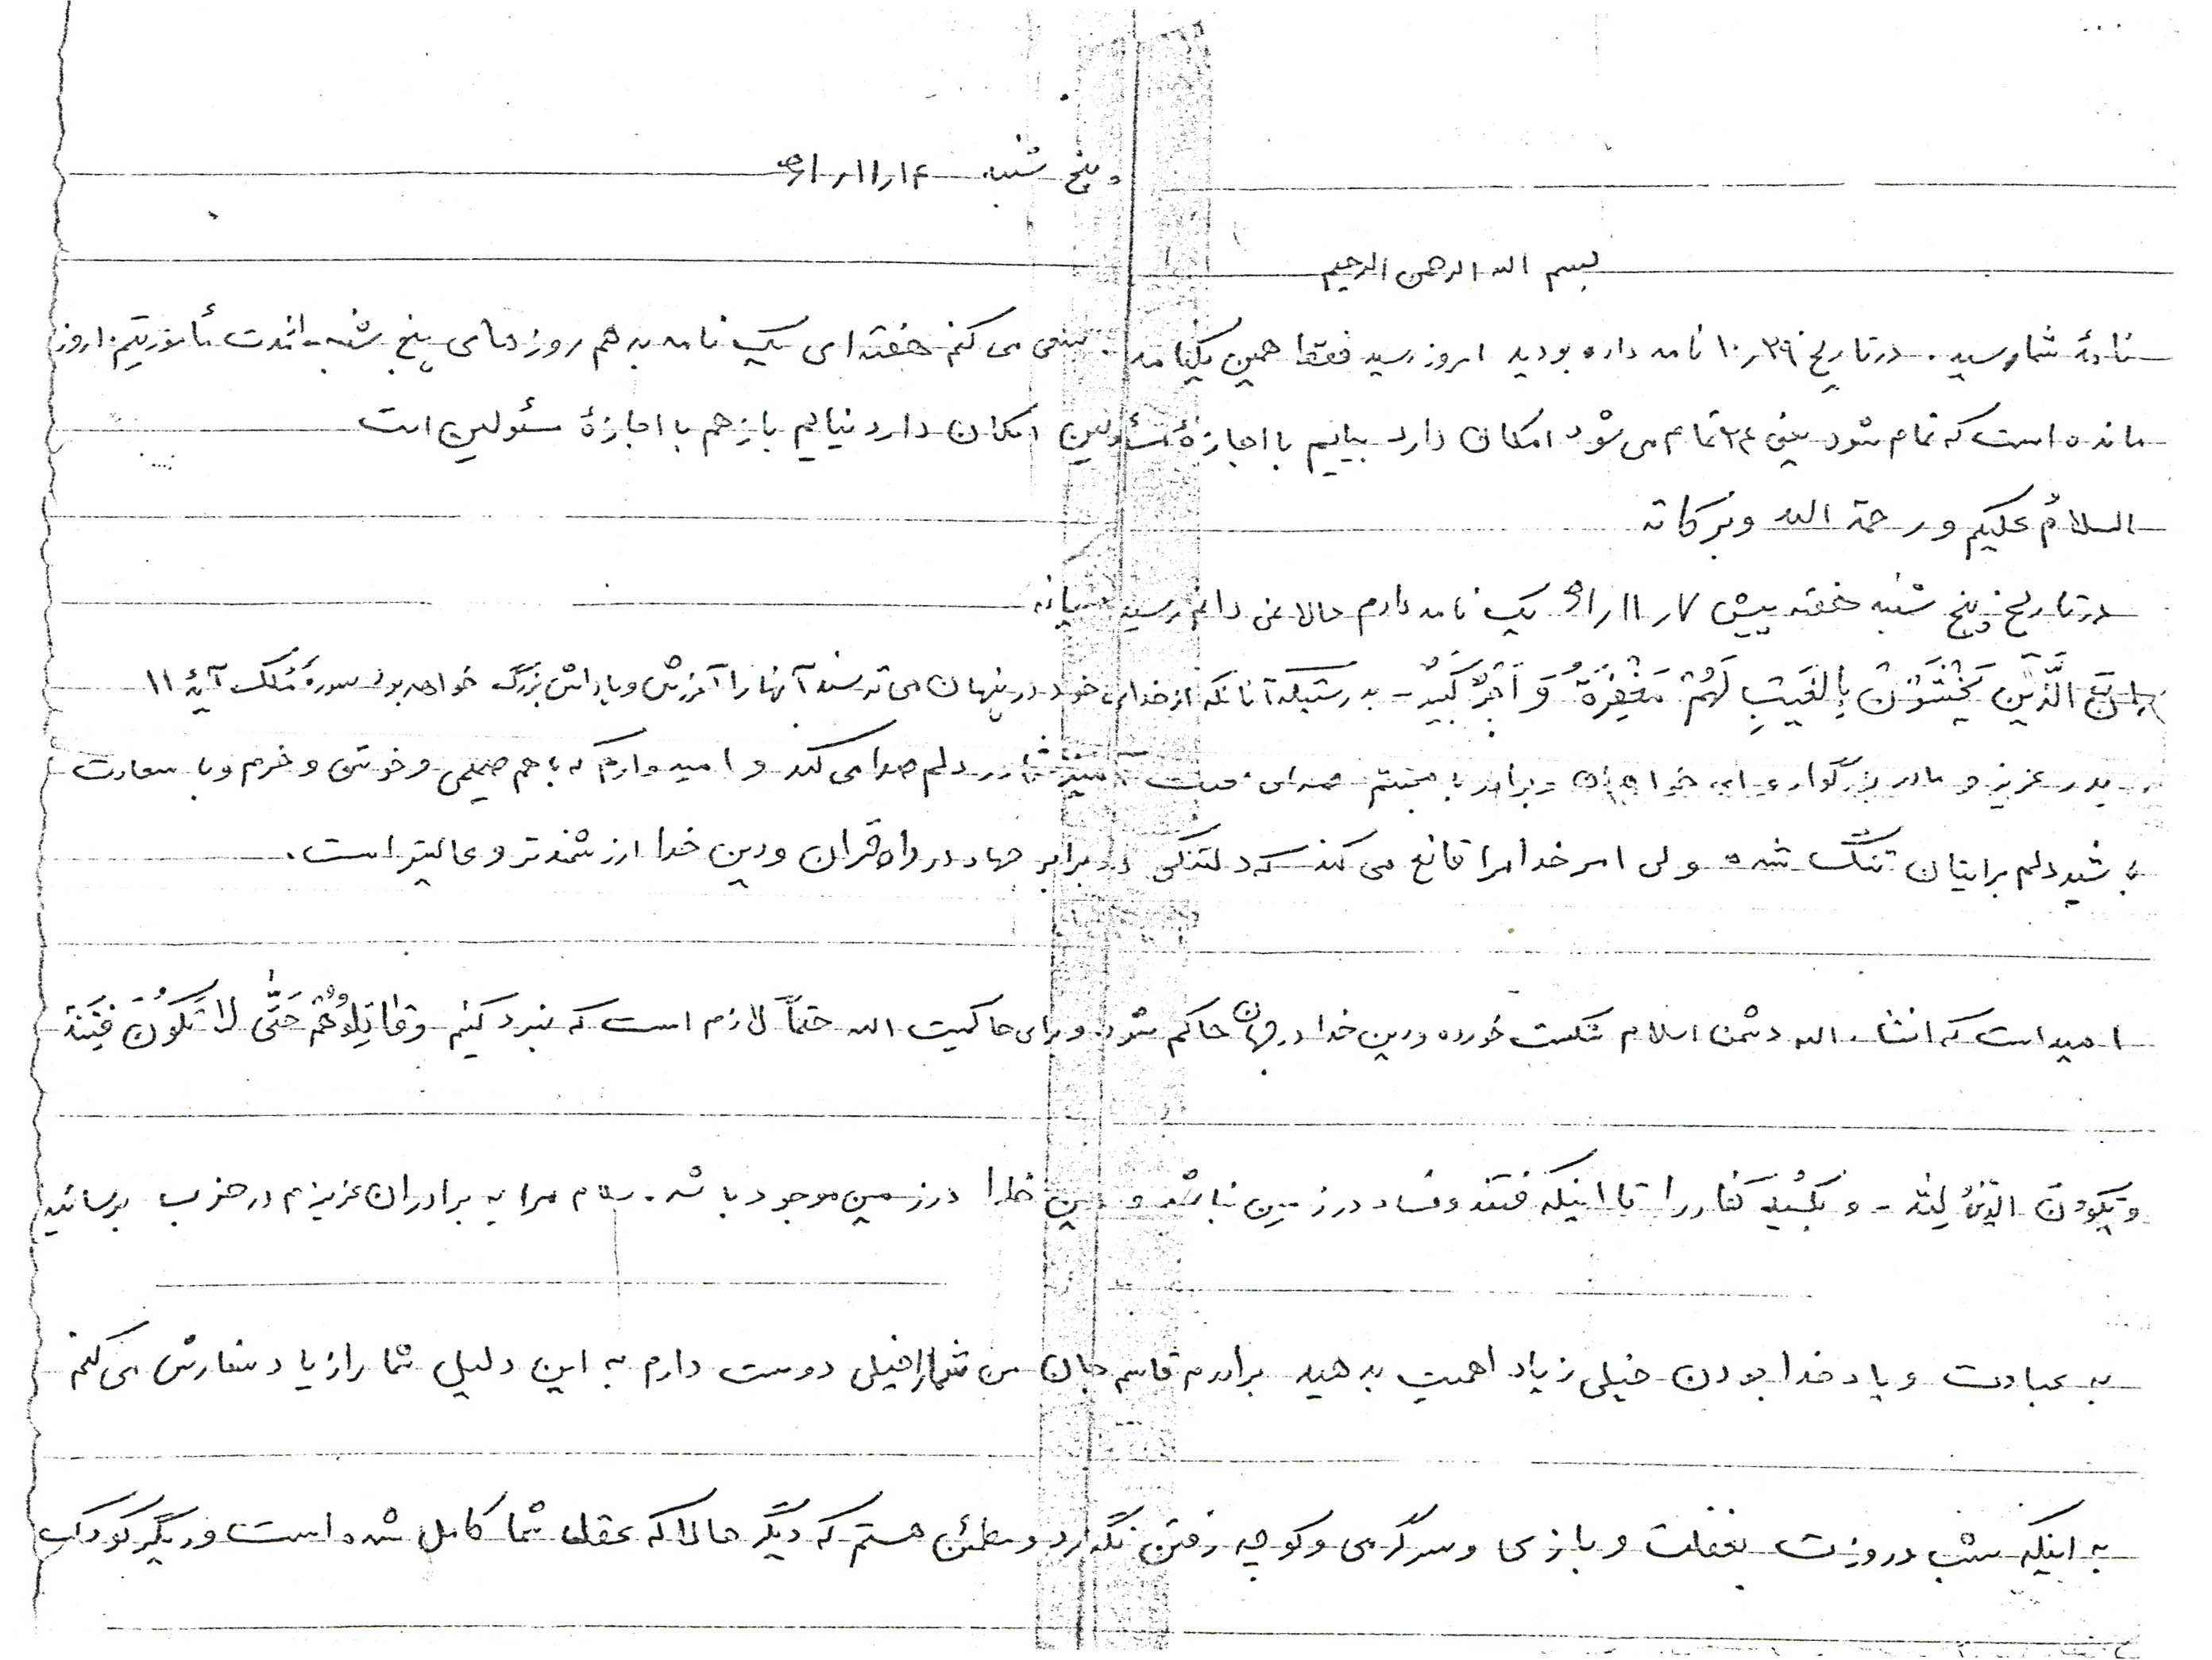 پنج شنبه ۶۱/۱۱/۱۴
بسم الله الرحمن الرحیم
نامهٔ شما رسید. در تاریخ ۱۰/۲۹ نامه داده بودید امروز رسید فقط همین یکنامه. سعی می کنم هفته ای یک نامه بدهم روزهای پنج شنبه
مانده است که تمام شود یعنی ۲۴ تمام می شود امکان دارد بیایم با اجازهٔ مسئولین امکان دارد نیایم باز هم با اجازهٔ مسئولین است
السلامُ علیکم و رحمة الله و برکاته
در تاریخ پنج شنبه هفته پیش ۶۱/۱۱/۷ یک نامه دادم حالا نمی دانم رسیده یا نه
اِنَّ الَّذینَ یَخْشَوْنَ رَبَّهُم بِالغَیبِ لَهُمْ مَغْفِرَةٌ وَ اَجْرٌ کَبیرٌ - بدرستیکه آنانکه از خدای خود در پنهان می ترسند آنها را آمرزش و پاداش بزرگ خواهد بود سورهٔ مُلک آیهٔ ۱۱
پدر عزیز و مادر بزرگوار و ای خواهران و برادر با محبتم صدای شما در دلم صدا می کند و امیدوارم که با هم صمیمی و خوش و خرم و با سعادت
باشید دلم برایتان تنگ شده ولی امر خدا مرا قانع می کند که دلتنگی در برابر جهاد در راه قران و دین خدا ارزشمندتر و عالیتر است.
امید است که انشاء الله دشمن اسلام شکست خورده و دین خدا در جهان حاکم شود. و برای حاکمیت الله حتماً لازم است که نبرد کنیم وقاتِلُوهُمْ حَتّی لا تَکُونَ فِتْنَة
وَیَکوُنَ الدّینُ لِلّه - و بکُشید کفار را تا اینکه فتنه و فساد در زمین نباشد و دین خدا در زمین موجود باشد. سلام مرا به برادران عزیزم در حزب برسانید
به عبادت و یاد خدا بودن خیلی زیاد اهمیت بدهید برادرم قاسم جان من شما را خیلی دوست دارم به این دلیل شما را زیاد سفارش می کنم
به اینکه شب و روزت بغفلت و بازی و سرگرمی و کوچه رفتن نگذارد و مطمئن هستم که دیگر حالا که عقل شما کامل شده است و دیگر کودک